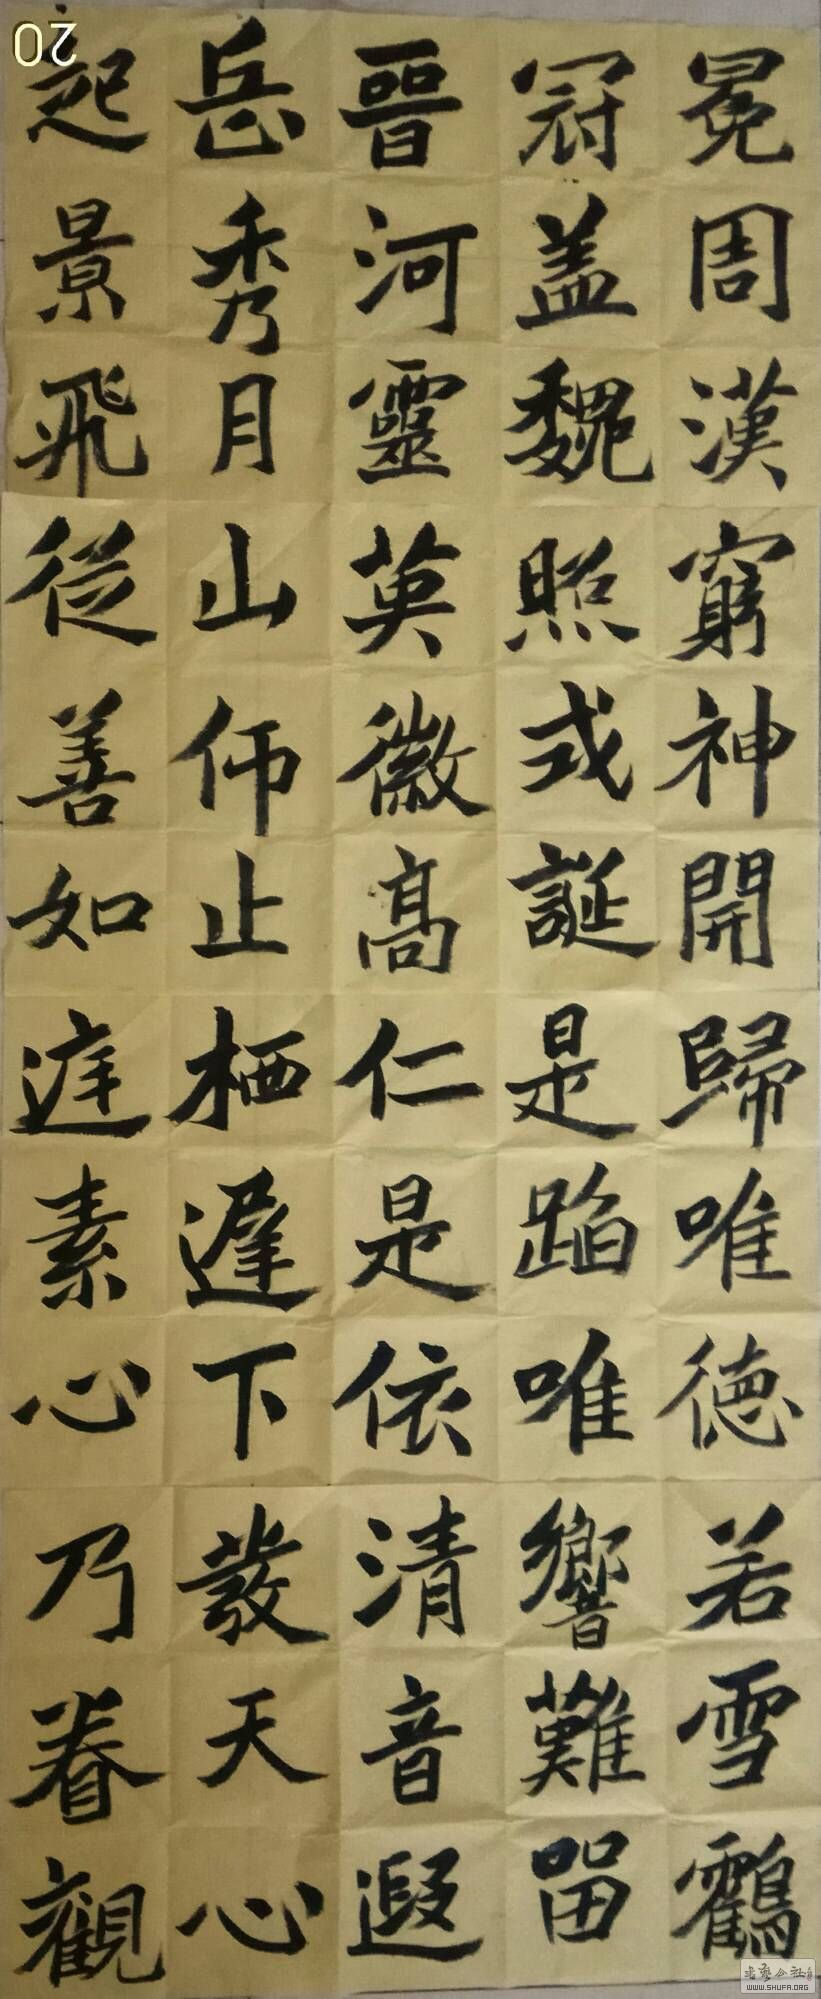 冕周漢
冠盖魏
晉河靈
岳秀月
起景飛
窮神開
照式誕
英徽高
山仰止
從善如
歸唯德
是蹈唯
仁是依
栖遲下
庭素心
若雪鶴
響難留
清音遐
發天心
乃眷觀
20
書藝公社
WWW.SHUFA.ORG